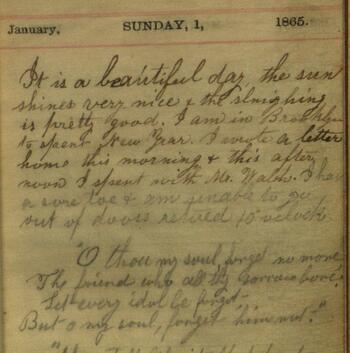 January, SUNDAY, 1, 1865.
It is a beautiful day, the sun
shines very nice & the sleighing
is pretty good. I am in Brooklyn
to spent New Year. I wrote a letter
home this morning & this after
noon I spent with Mr. I have
a sore toe & am unable to go
out of doors retired 10 o'clock
"O thou my soul, forget no more
The friend who all thy sorrows bore!
Let every idol be forgot
But o my soul, forget him not."